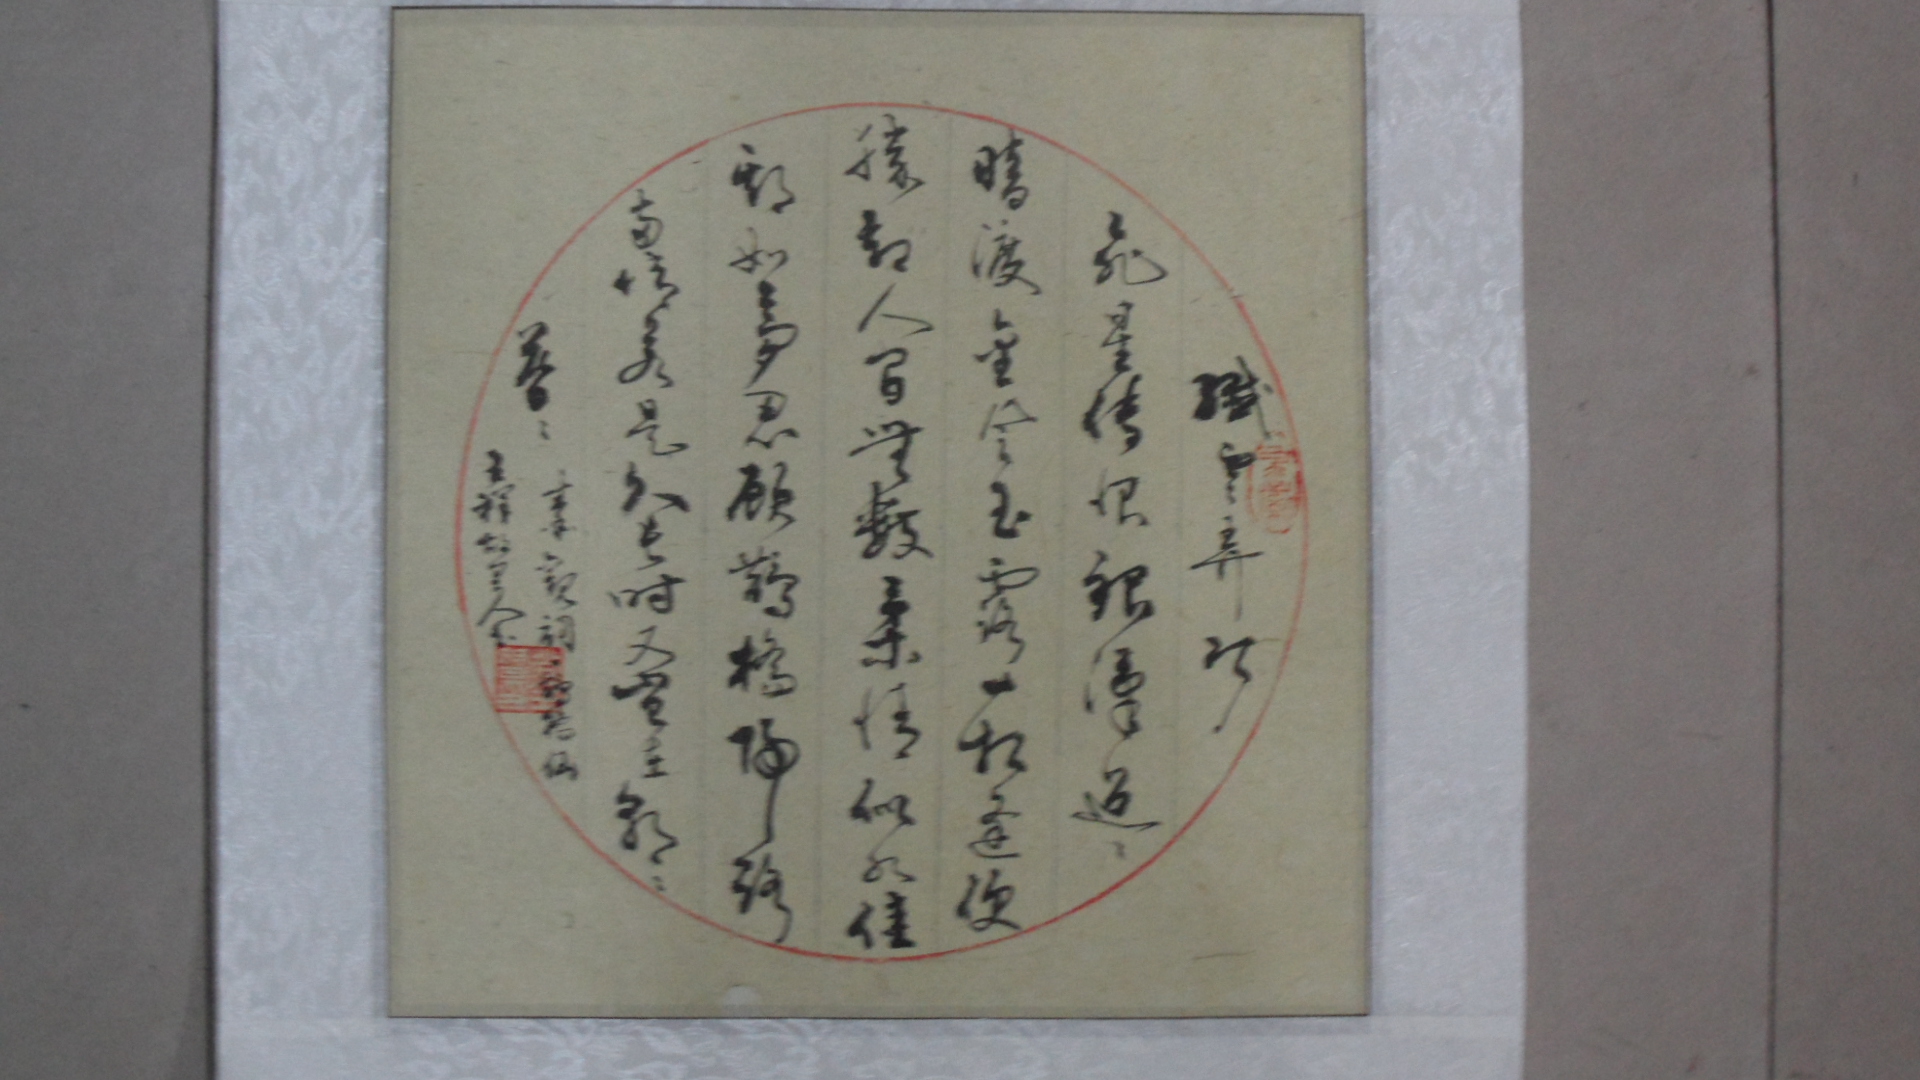 纖雲弄巧
飛星傳恨銀漢迢〻
暗渡金風玉露一相逢便
勝却人間無數柔情似水佳
期如夢忍顧鵲橋歸路
兩情若是久長時又豈在朝〻
暮〻
秦觀詞鵲橋仙